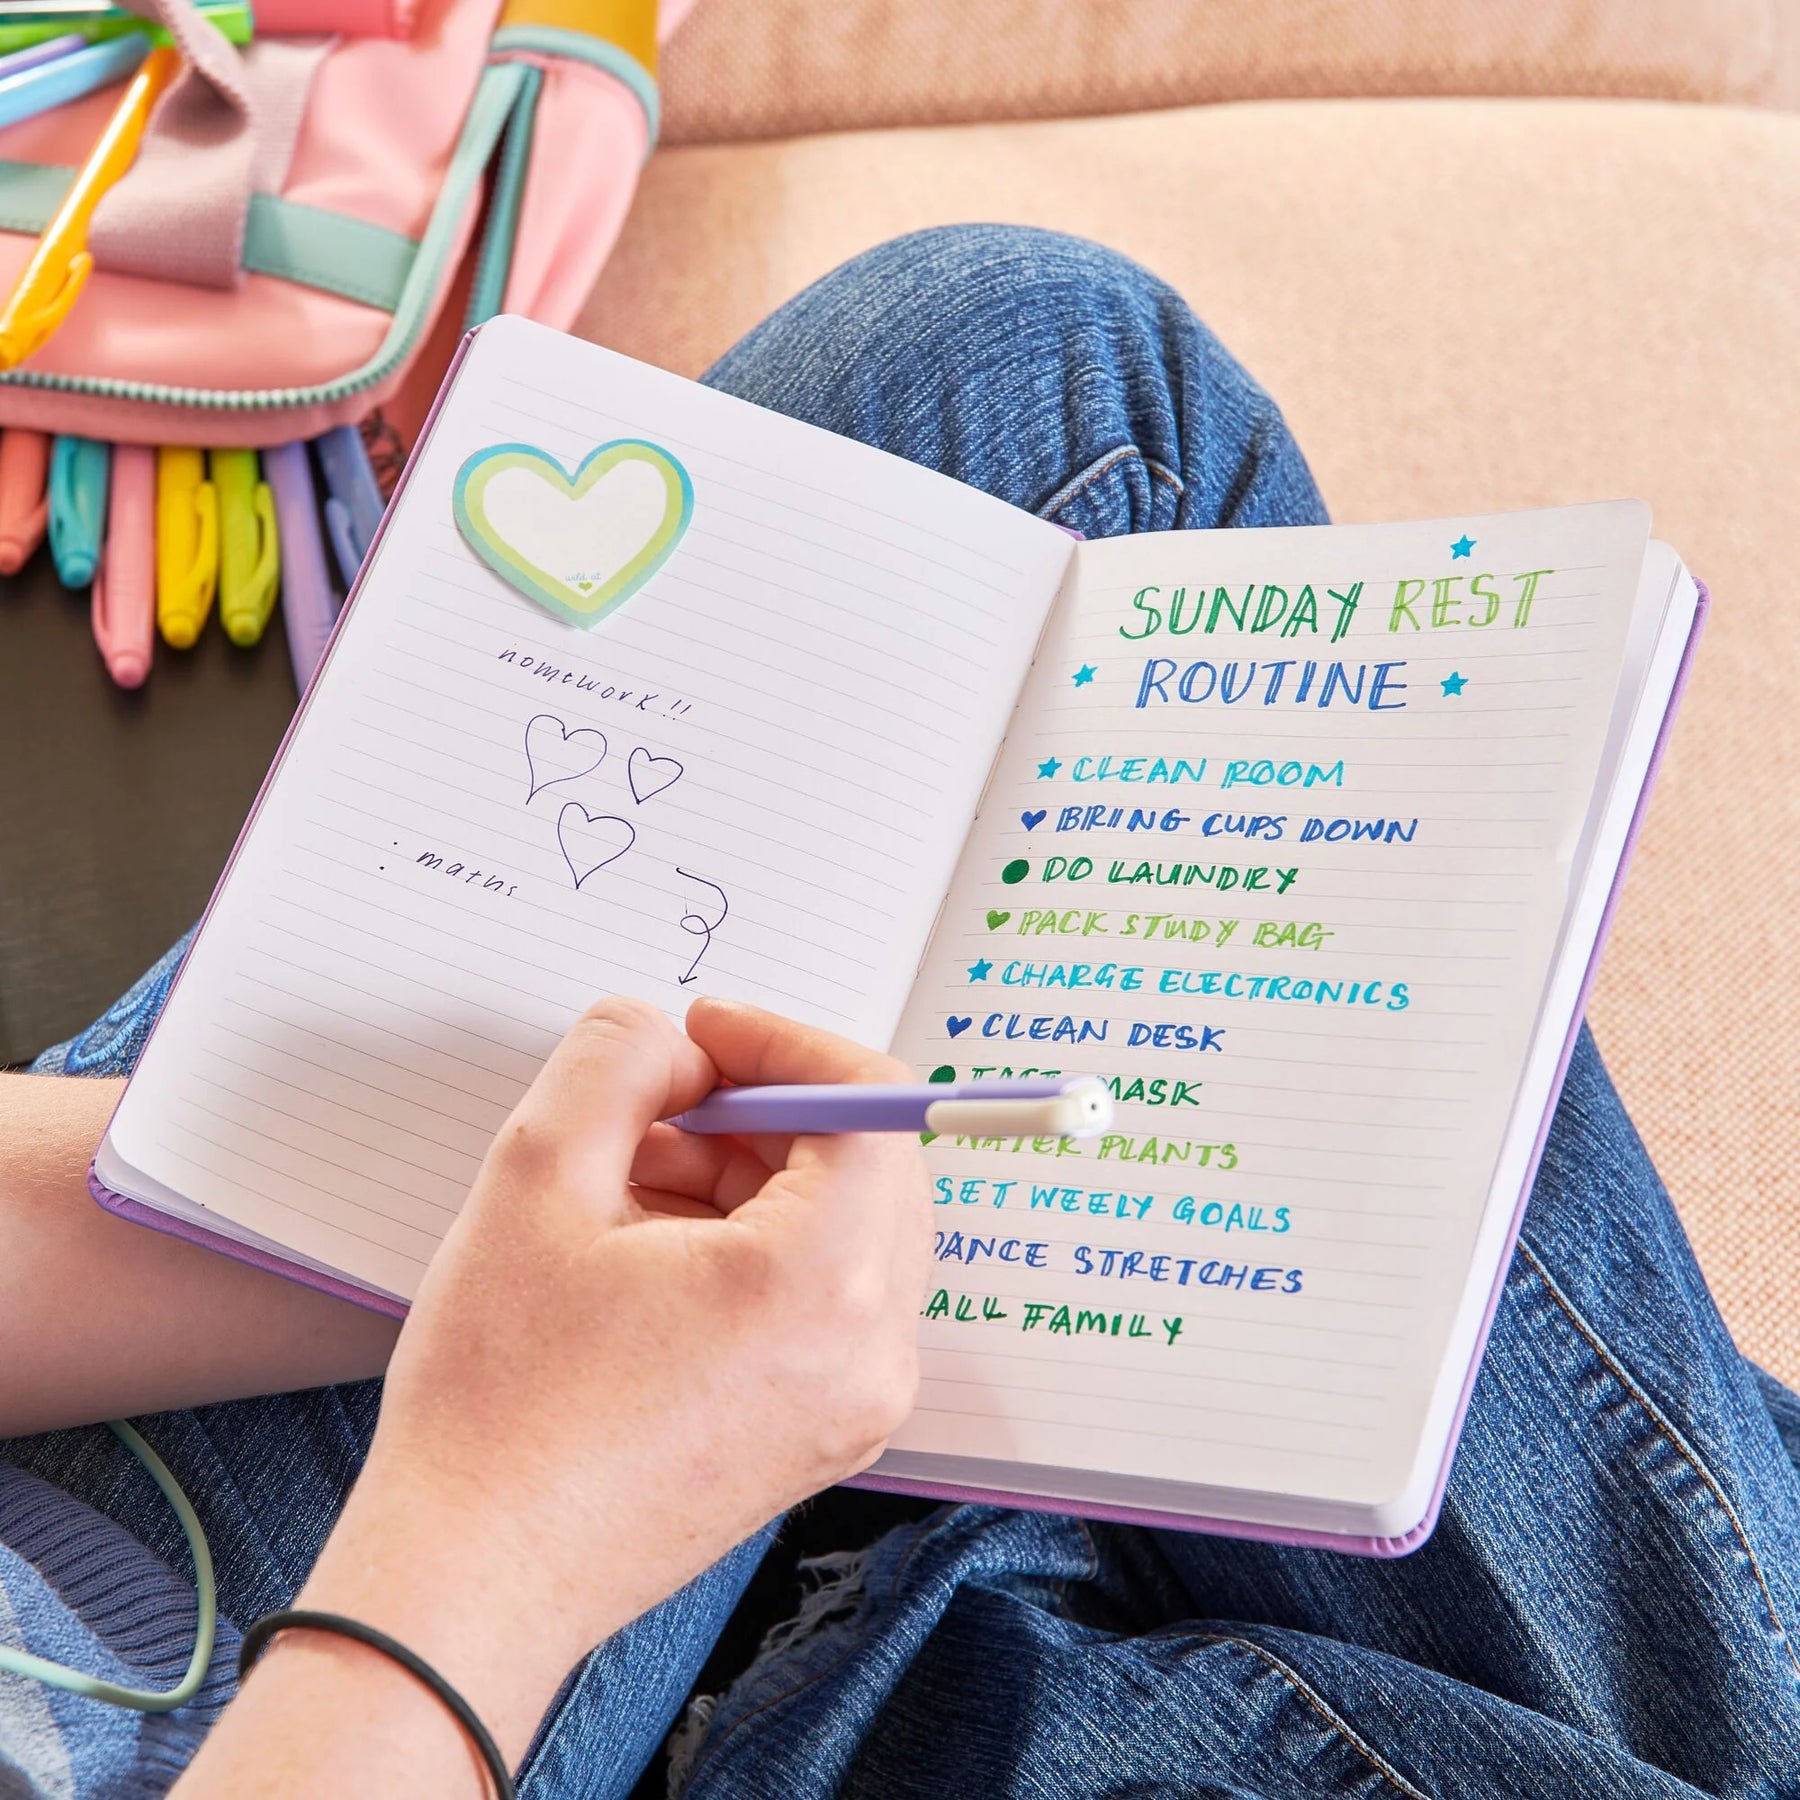 wild at
homework!!
: maths
SUNDAY REST
ROUTINE
CLEAN ROOM
BRING CUPS DOWN
DO LAUNDRY
PACK STUDY BAG
CHARGE ELECTRONICS
CLEAN DESK
FACE MASK
WATER PLANTS
SET WEELY GOALS
DANCE STRETCHES
CALL FAMILY